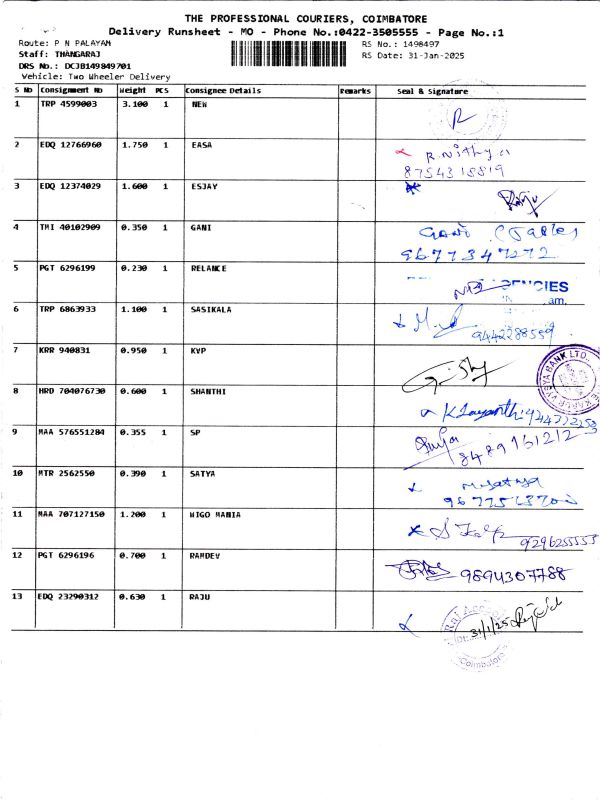 THE PROFESSIONAL COURIERS, COIMBATORE
Delivery Runsheet - MO - Phone No.:0422-3505555 - Page No.:1
Route: P N PALAYAM
RS No.: 1498497
Staff: THANGARAJ
RS Date: 31-Jan-2025
DRS No.: DCJB149849701
Vehicle: Two Wheeler Delivery
S No Consignment No Weight PCS Consignee Details Remarks Seal & Signature
1 TRP 4599003 3.100 1 NEW
2 EDQ 12766960 1.750 1 EASA R.Nithya
8754315819
3 EDQ 12374029 1.600 1 ESJAY
4 TMI 40102909 0.350 1 GANI Gani
9677347272
5 PGT 6296199 0.230 1 RELANCE
6 TRP 6863933 1.100 1 SASIKALA
9442288559
7 KRR 940831 0.950 1 KVP
VYSYA BANK LTD.
8 HRD 704076730 0.600 1 SHANTHI
9 MAA 576551284 0.355 1 SP
8489161212
10 MTR 2562550 0.390 1 SATYA
11 MAA 707127150 1.200 1 WIGO MANIA
9296255553
12 PGT 6296196 0.700 1 RAMDEV 9894307788
13 EDQ 23290312 0.630 1 RAJU
31/1/25
Coimbatore